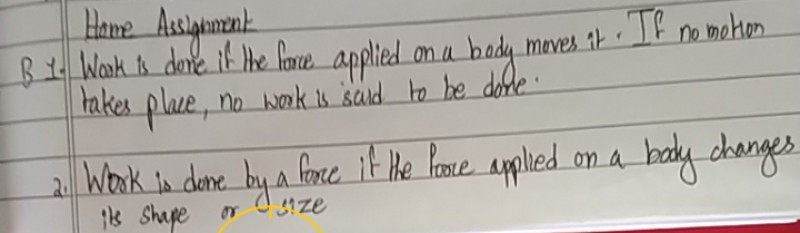 Home Assignment
B 1. Work is done if the force applied on a body moves it. If no motion
takes place, no work is said to be done.
2. Work is done by a force if the force applied on a body changes
its shape or size